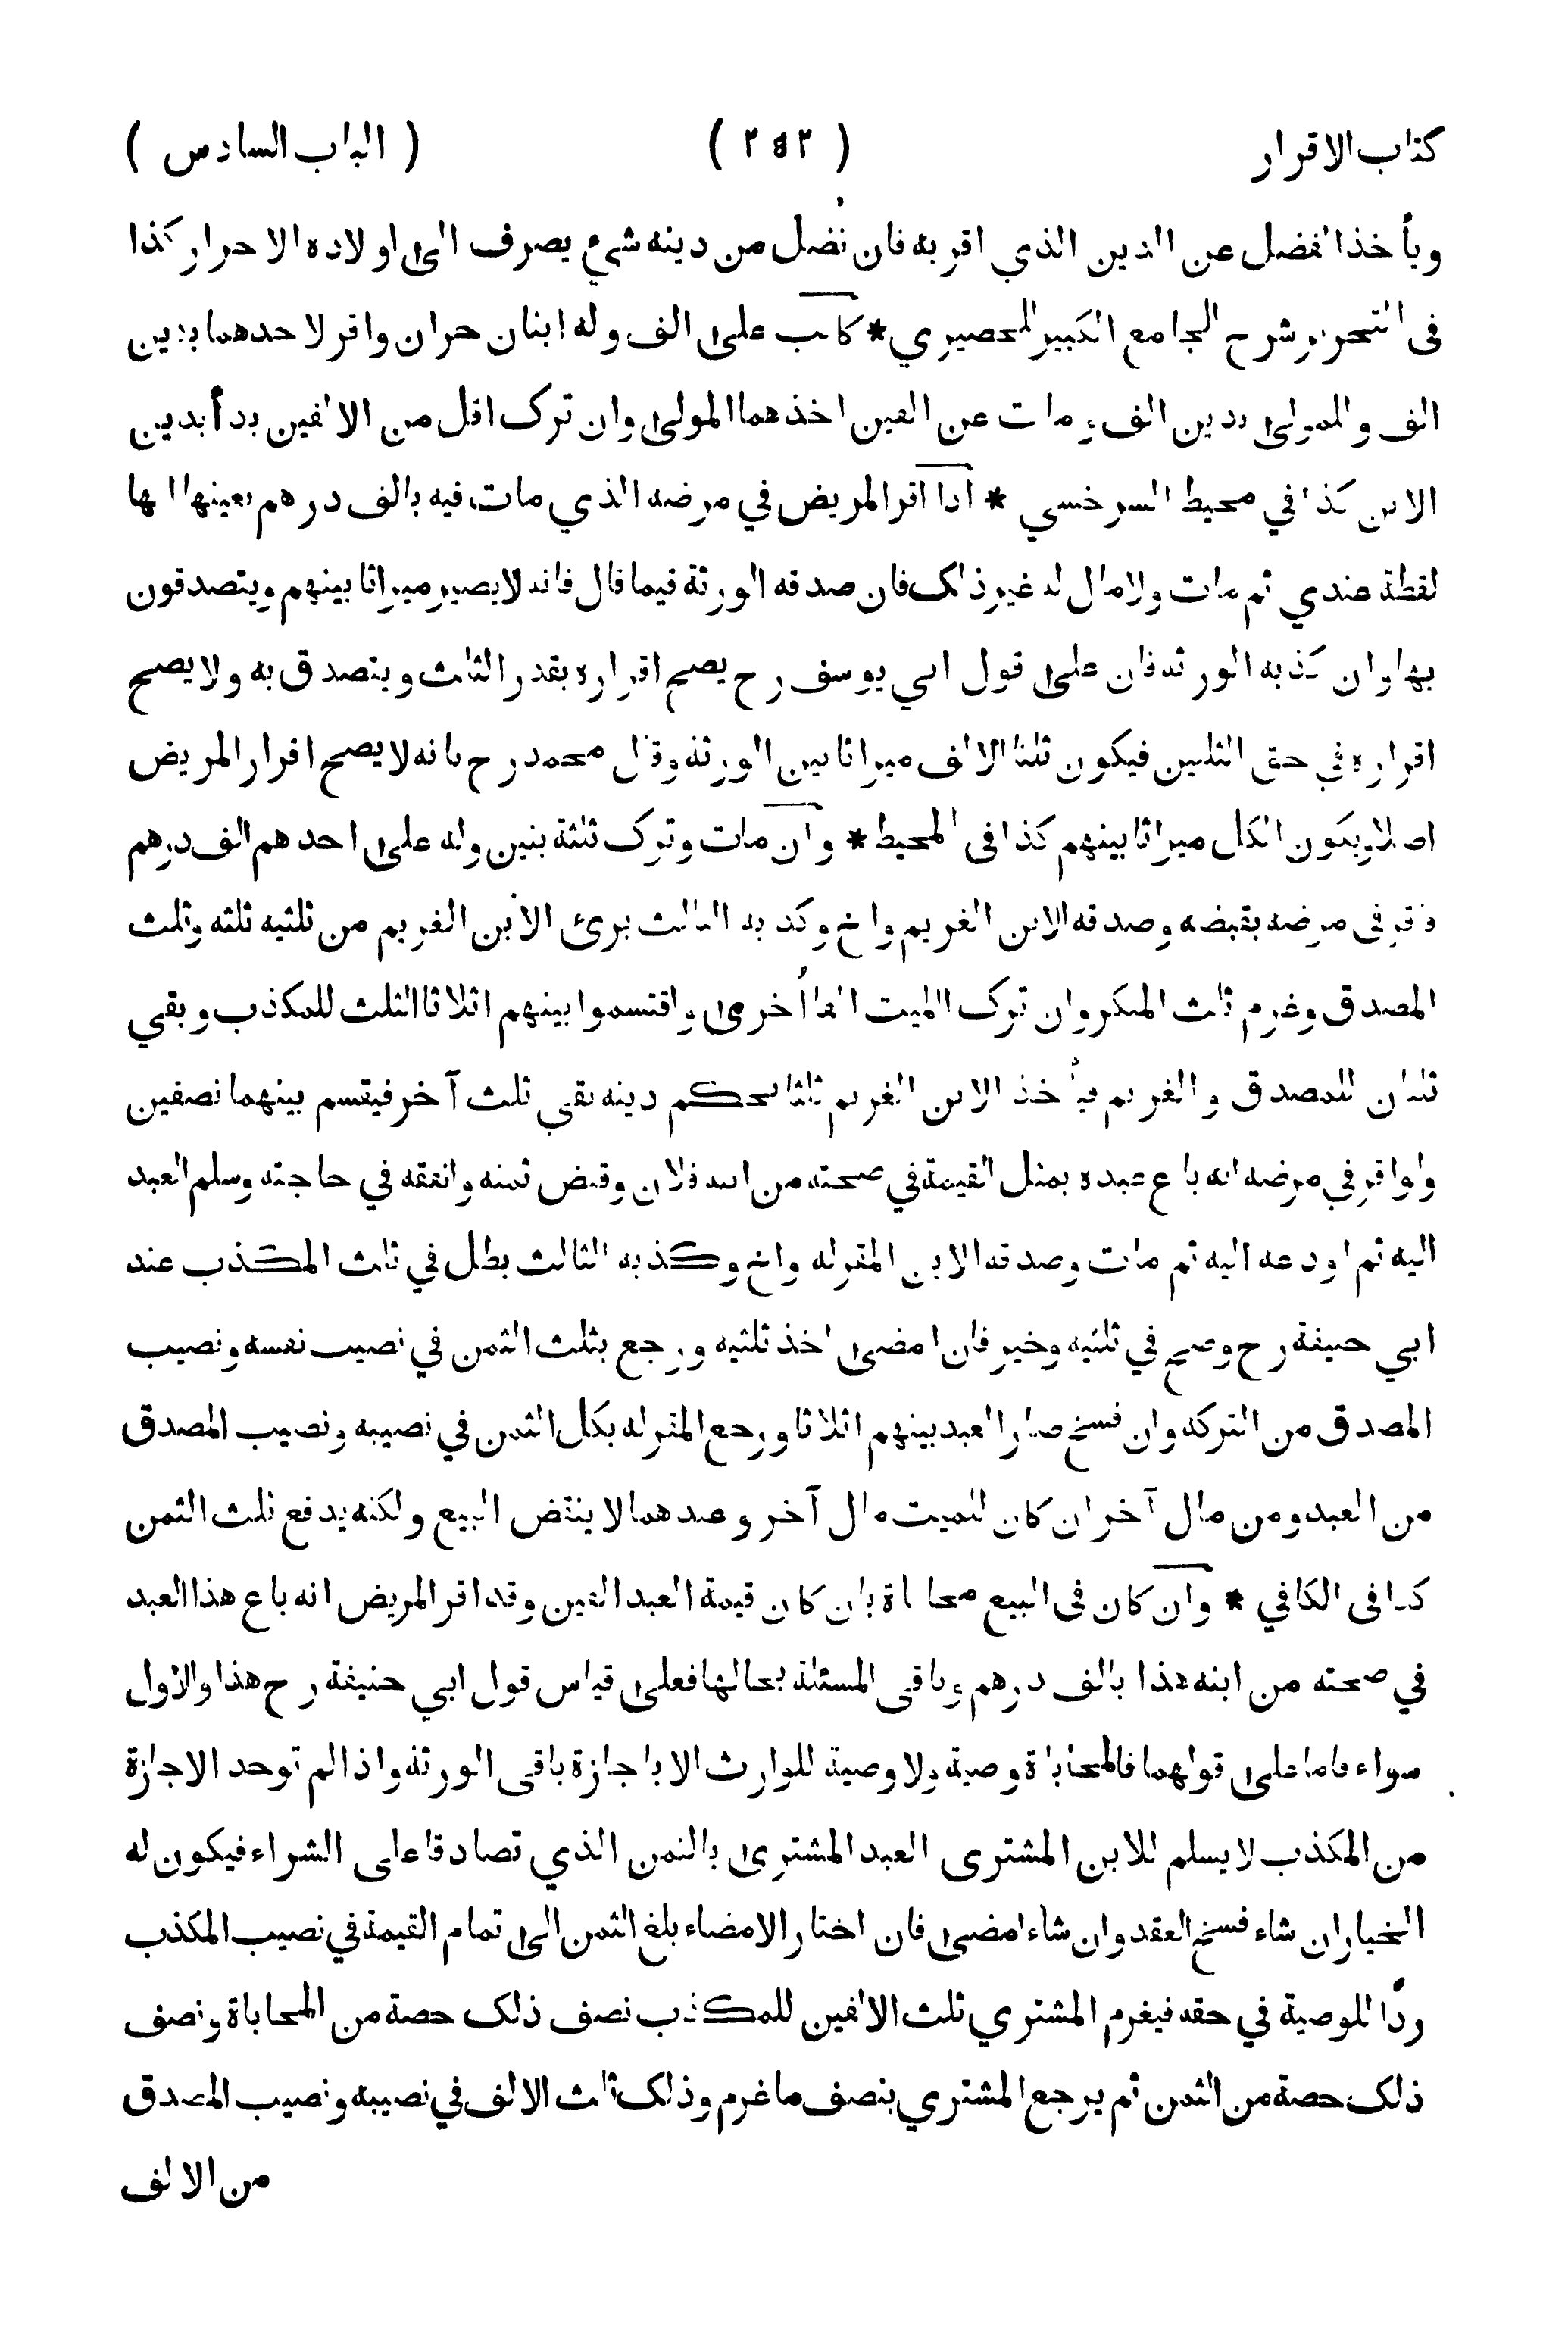 كتاب الاقرار ( ٢٥٢ ) ( الباب السادس )
ويأخذ الفضل عن الدين الذي اقر به فان فضل من دينه شيء يصرف الى اولاده الاحرار كذا
فى التحرير شرح الجامع الكبير للحصيري * كاتب على الف وله ابنان حران واقر لاحدهما بدين
الف وللمولى بدين الف ومات عن الفين اخذهما المولى وان ترك اقل من الالفين بدأ بدين
الابن كذا في محيط السرخسي * اذا اقر المريض في مرضه الذي مات فيه بالف درهم بعينها انها
لقطة عندي ثم مات ولا مال له غير ذلك فان صدقه الورثة فيما قال فانه لا يصير ميراثا بينهم ويتصدقون
بها وان كذبه الورثة فان على قول ابي يوسف رح يصح اقراره بقدر الثلث ويتصدق به ولا يصح
اقراره في حق الثلثين فيكون ثلثا الالف ميراثا بين الورثة وقال محمد رح بانه لا يصح اقرار المريض
اصلا ويكون الكل ميراثا بينهم كذا فى المحيط * وان مات وترك ثلثة بنين وله على احدهم الف درهم
فاقر فى مرضه بقبضه وصدقه الابن الغريم واخ وكذبه الثالث برئ الابن الغريم من ثلثيه ثلثه وثلث
المصدق وغرم ثلث المنكر وان ترك الميت الفا أخرى واقتسموا بينهم اثلاثا الثلث للمكذب وبقي
ثلثان للمصدق والغريم فيأخذ الابن الغريم ثلثا بحكم دينه بقي ثلث آخر فيقسم بينهما نصفين
ولو اقر في مرضه انه باع عبده بمثل القيمة في صحته من ابنه فلان وقبض ثمنه وانفقه في حاجته وسلم العبد
اليه ثم اودعه اليه ثم مات وصدقه الابن المقر له واخ وكذبه الثالث بطل في ثلث المكذب عند
ابي حنيفة رح وصح في ثلثيه وخير فان امضى اخذ ثلثيه ورجع بثلث الثمن في نصيب نفسه ونصيب
المصدق من التركه وان فسخ صار العبد بينهم اثلاثا ورجع المقر له بكل الثمن في نصيبه ونصيب المصدق
من العبد ومن مال آخر ان كان للميت مال آخر وعندهما لا ينتقض البيع ولكنه يدفع ثلث الثمن
كذا فى الكافي * وان كان فى البيع محاباة بان كان قيمة العبد الفين وقد اقر المريض انه باع هذا العبد
في صحته من ابنه هذا بالف درهم وباقى المسئلة بحالها فعلى قياس قول ابي حنيفة رح هذا والاول
سواء فاما على قولهما فالمحاباة وصية ولا وصية للوارث الا باجازة باقى الورثة واذا لم توجد الاجازة
من المكذب لا يسلم للابن المشترى العبد المشترى بالثمن الذي تصادقا على الشراء فيكون له
الخيار ان شاء فسخ العقد وان شاء امضى فان اختار الامضاء بلغ الثمن الى تمام القيمة في نصيب المكذب
ردًا للوصية في حقه فيغرم المشتري ثلث الالفين للمكذب نصف ذلك حصة من المحاباة ونصف
ذلك حصة من الثمن ثم يرجع المشتري بنصف ما غرم وذلك ثلث الالف في نصيبه ونصيب المصدق
من الالف